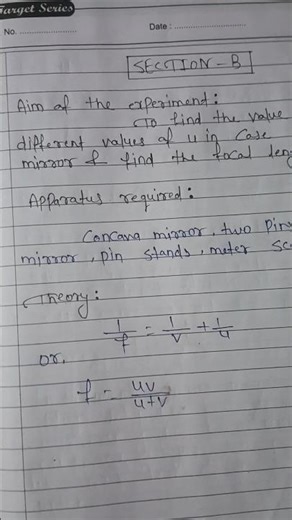 Target Series
No. ....................
Date : ....................
SECTION - B
Aim of the experiment:
To find the value
different values of u in case
mirror & find the focal
Apparatus required:
Concava mirror, two Pins
mirror, pin stands, meter
Theory:
1/f = 1/v + 1/u
or,
f = uv/u+v